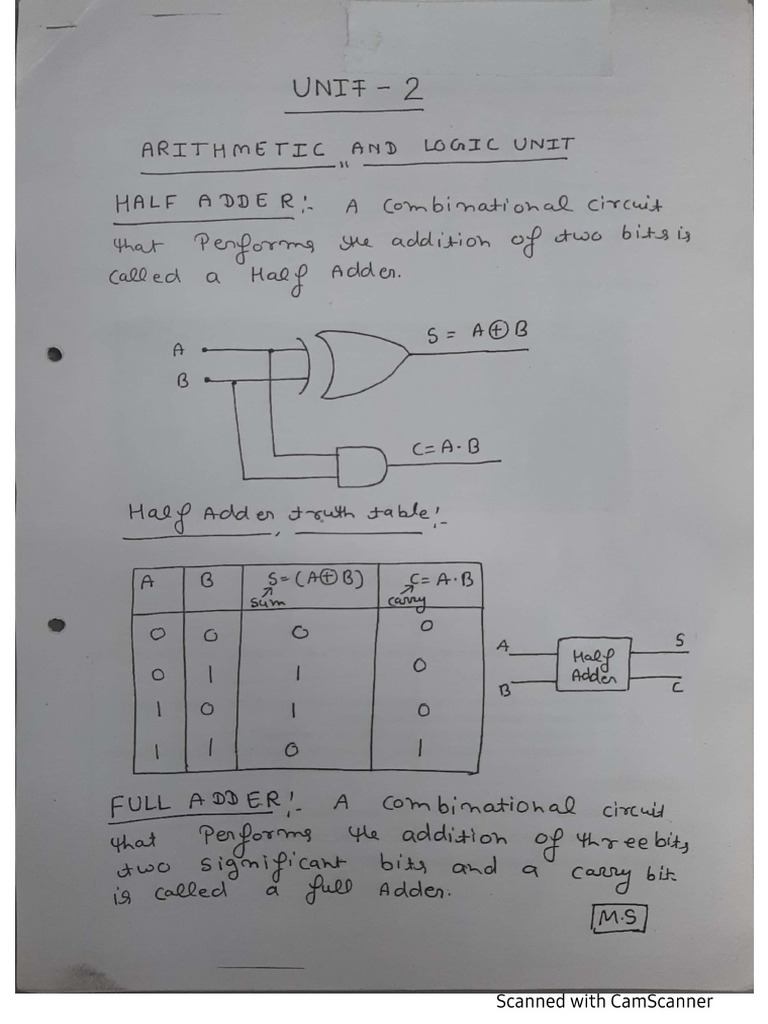 UNIT - 2
ARITHMETIC AND LOGIC UNIT
HALF ADDER:- A Combinational circuit
that Performs the addition of two bits is
called a Half Adder.
S = A⊕B
A
B
C = A·B
Half Adder truth table:-
A B S=(A⊕B) C= A·B
sum carry
0 0 0 0
0 1 1 0
1 0 1 0
1 1 0 1
A Half Adder S
B C
FULL ADDER:- A combinational circuit
that Performs the addition of three bits
two significant bits and a carry bit
is called a full Adder.
M.S
Scanned with CamScanner